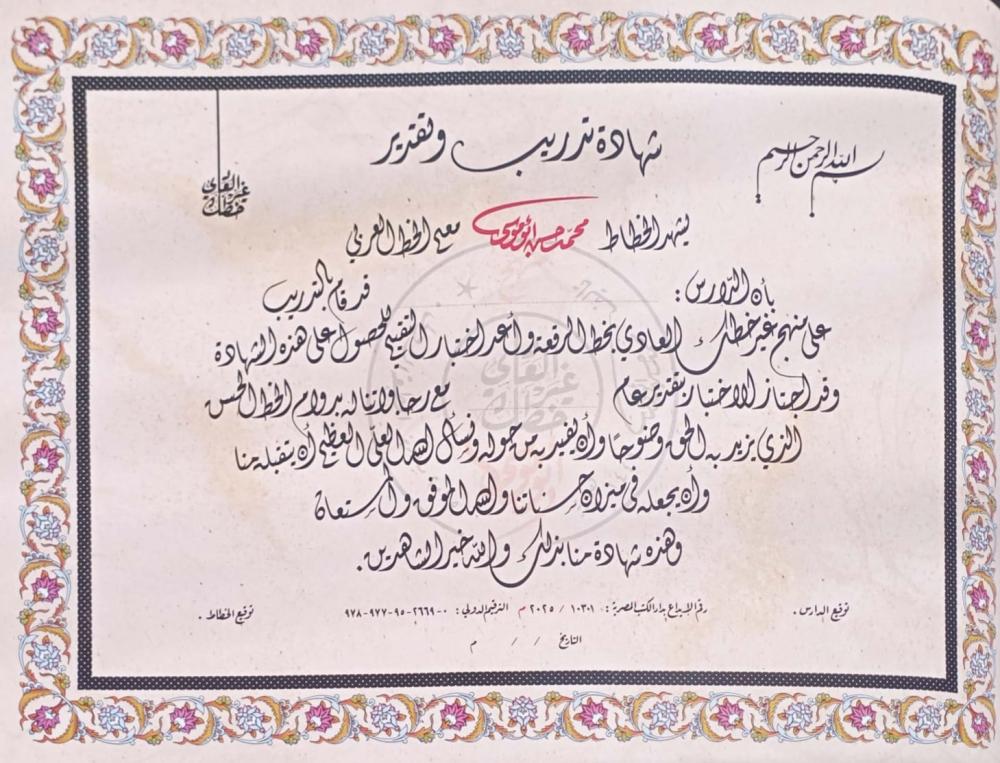 بسم الله الرحمن الرحيم
شهادة تدريب وتقدير
غير القاعدي
خطك
يشهد الخطاط محمد حسن أبو موسى معلم الخط العربي
بأن الدارس: قد قام بالتدريب
على منهج غير خطك العادي بخط الرقعة وأعد اختبار التقييم للحصول على هذه الشهادة
وقد اجتاز الاختبار بتقدير عام مع رجاواتنا له بدوام الخط الحسن
الذي يزيد به الحق وضوحا وأن يفيد به من حوله ونسأل الله العلي العظيم أن يتقبله منا
وأن يجعله في ميزان حسناتنا والله الموفق والمستعان
وهذه شهادة منا بذلك والله خير الشاهدين.
توقيع الدارس. رقم الإيداع بدار الكتب المصرية: ١٠٣٠١ / ٢٠٢٥ م الترقيم الدولي: ٠-٢٦٦٩-٩٥-٩٧٧-٩٧٨ توقيع الخطاط.
التاريخ / / م